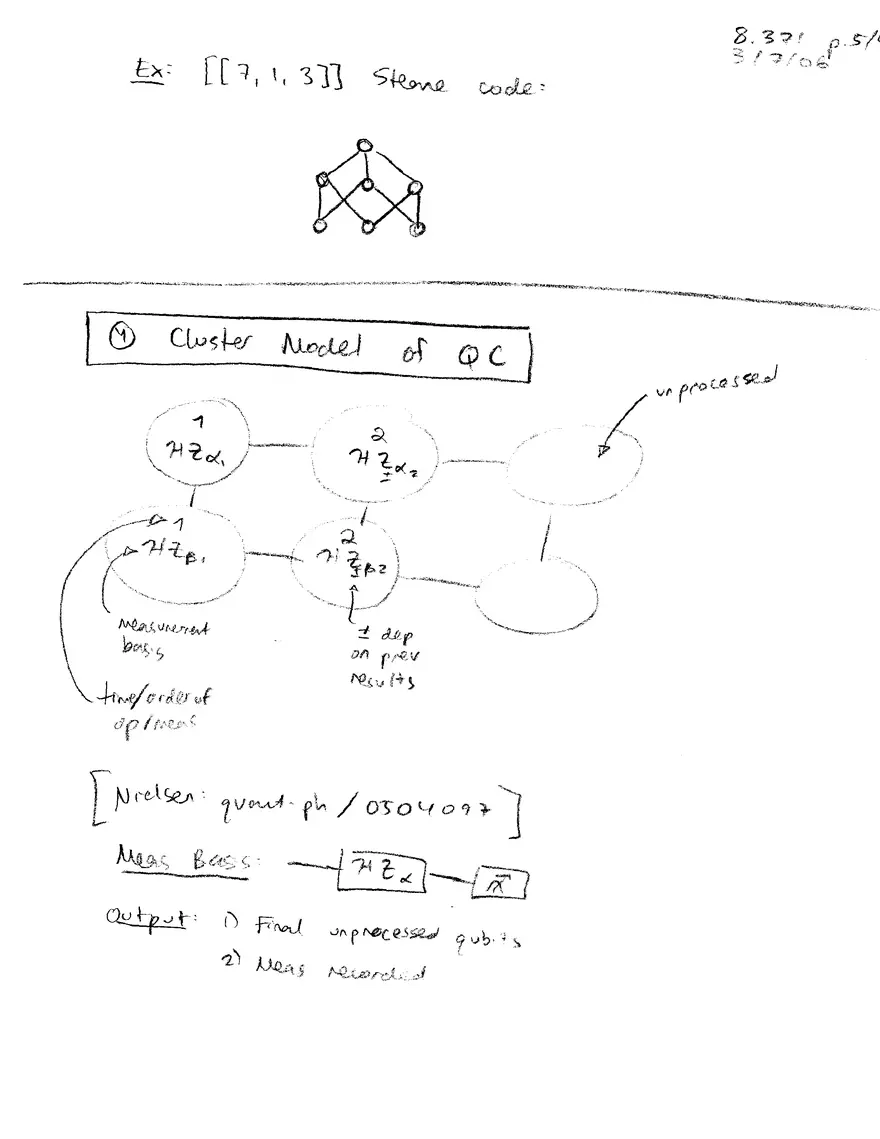 8.371 p.5/
3/7/06
Ex: [[7,1,3]] Steane code:
④ Cluster Model of QC
unprocessed
1
HZα₁
2
HZ±α₂
1
HZβ₁
2
HZ±β2
measurement
basis
± dep
on prev
results
time/order of
op/meas
[Nielsen: quant-ph/0504097]
Meas Basis: HZα
Output: 1) Final unprocessed qubits
2) Meas recorded